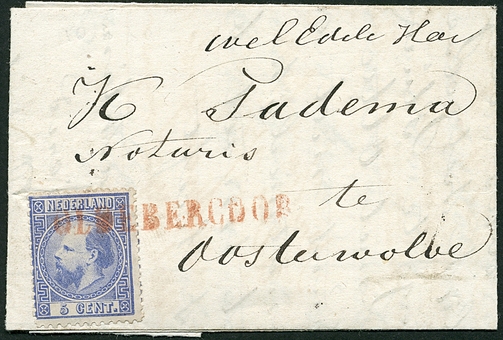 wel Edele Heer
K Tadema
Notaris
te
Oosterwolde
NEDERLAND
5 CENT.